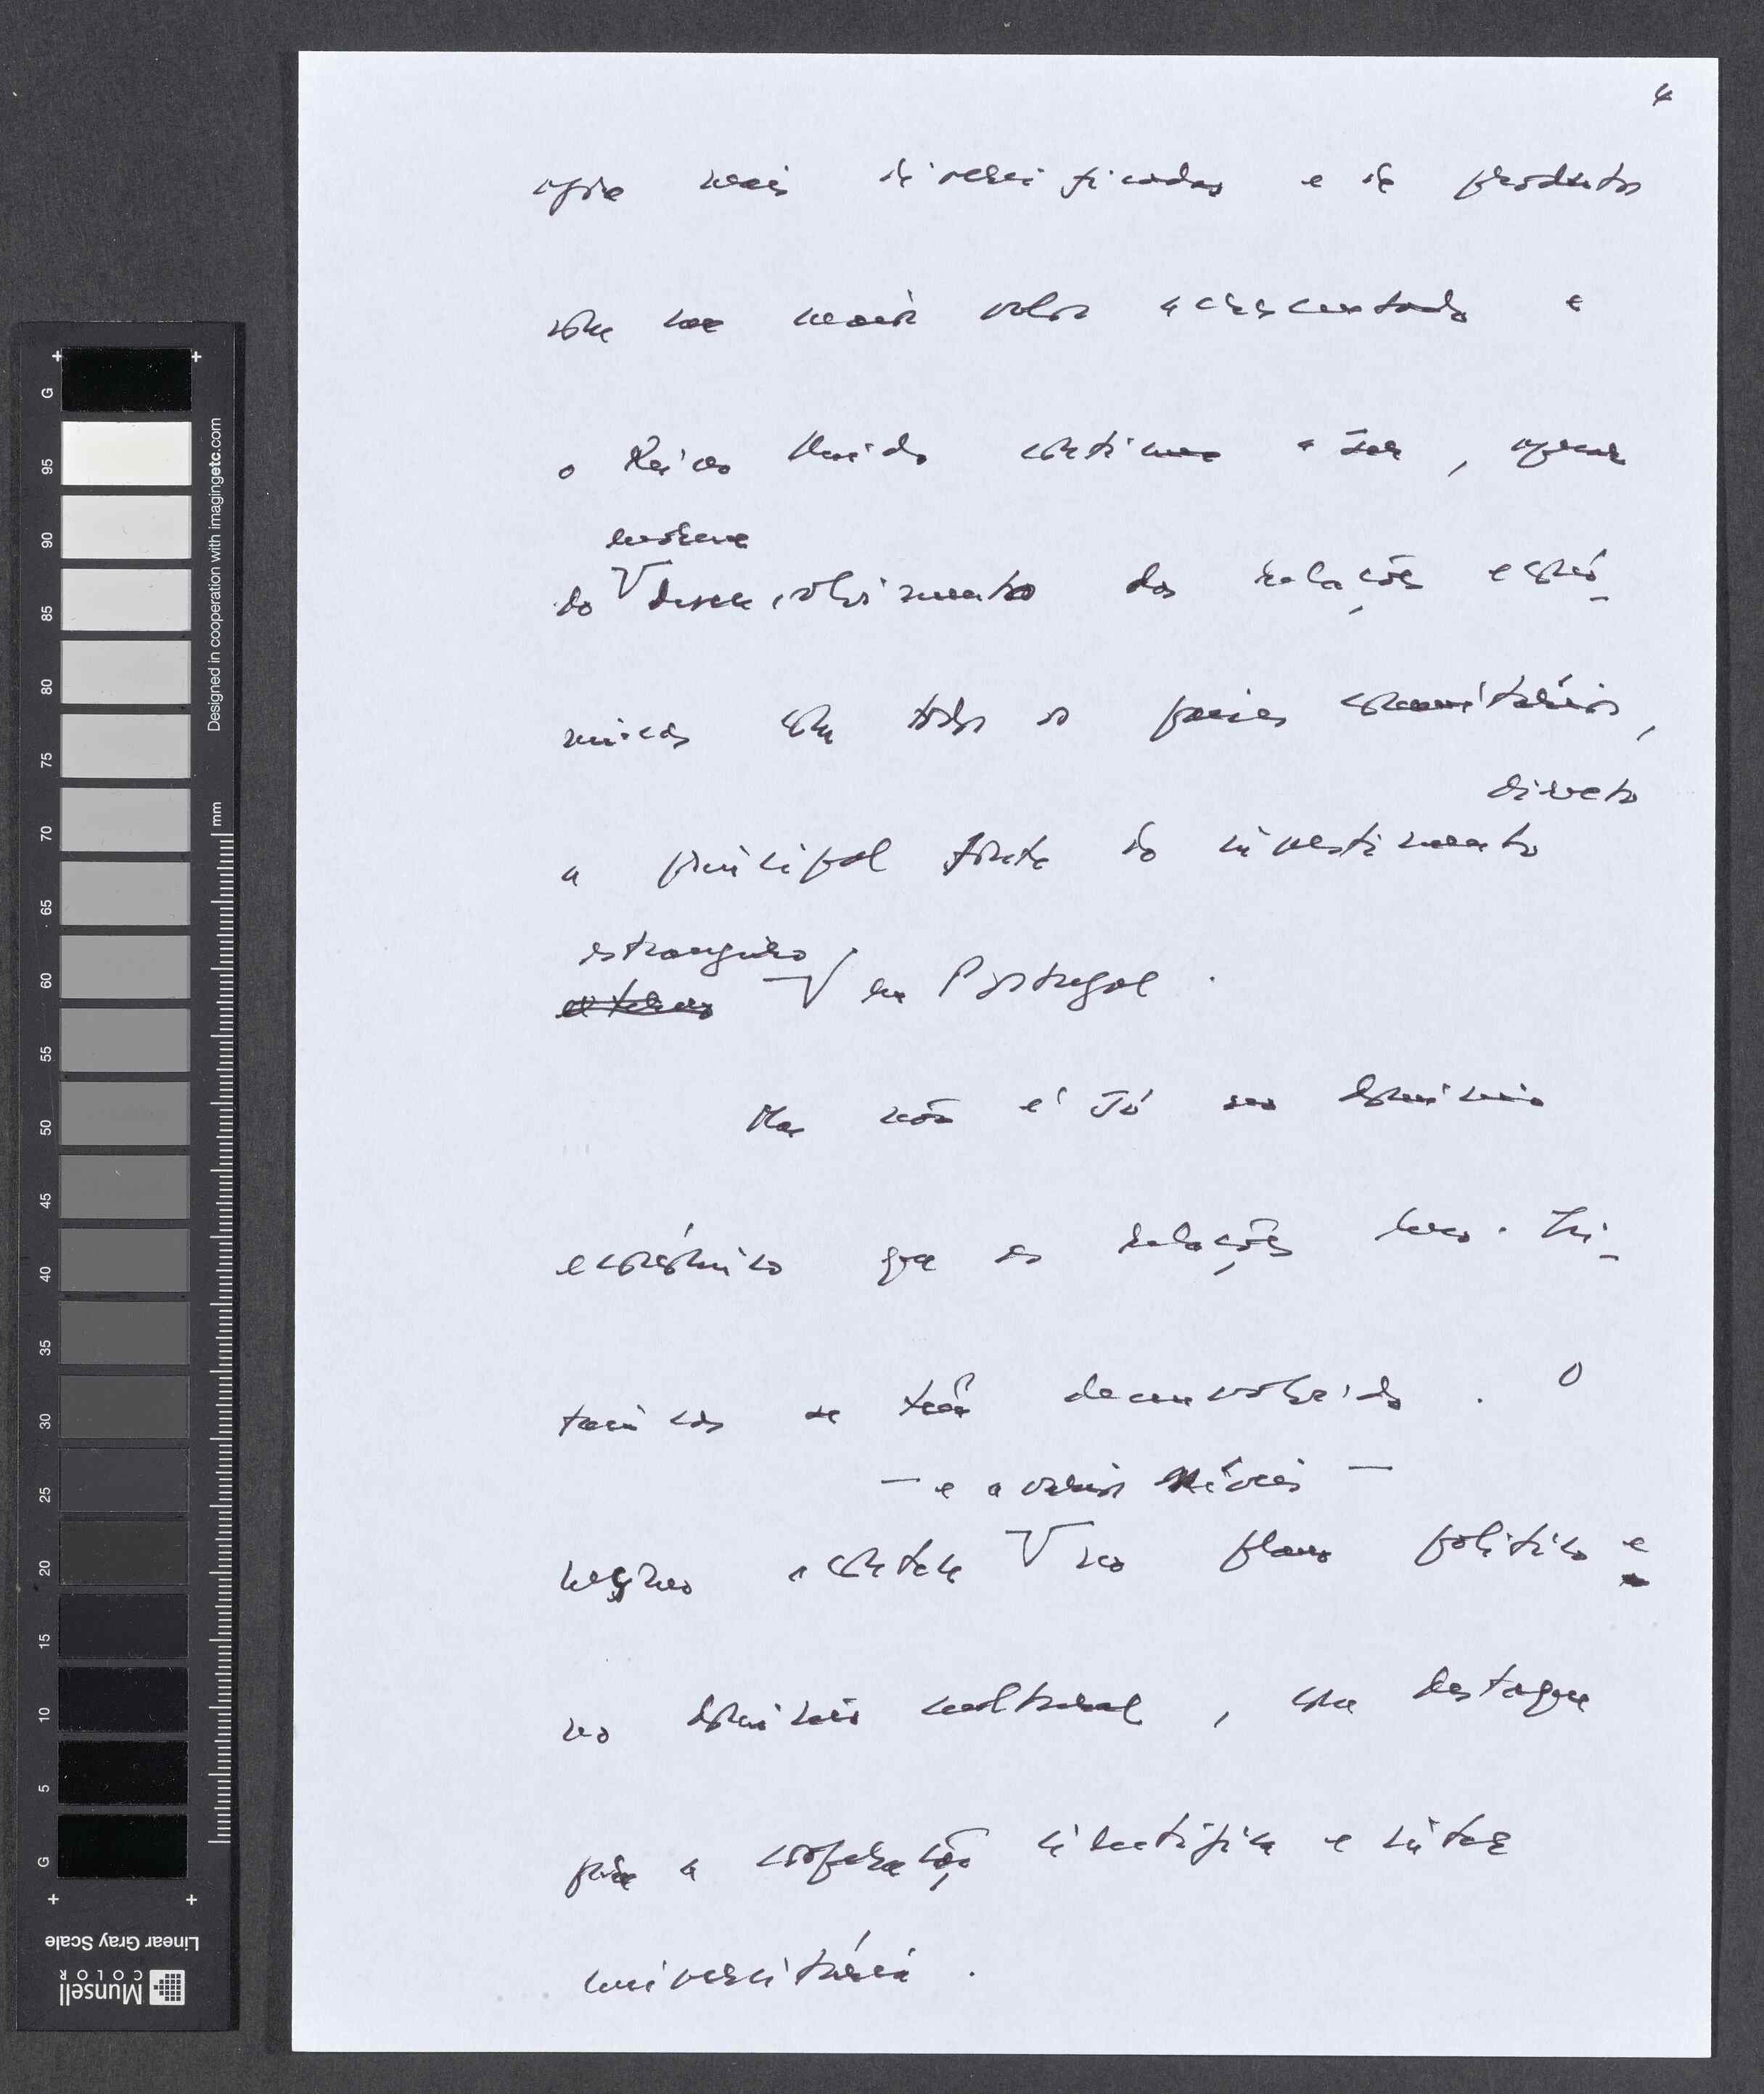 4
agora mais diversificadas e de produtos
com um maior valor acrescentado e
o Reino Unido continua a ser, apesar
enorme
do V desenvolvimento das relações econó-
micas com todos os países comunitários,
directo
a principal fonte do investimento
estrangeiro
externo V em Portugal.
Mas não é só no domínio
económico que as relações luso-bri-
tânicas se têm desenvolvido. O
— e a vários níveis —
mesmo acontece V no plano político e
no domínio cultural, com destaque
para a cooperação científica e inter
universitária.
G
95
90
85
80
75
70
65
60
55
50
45
40
35
30
25
20
15
10
5
G
Designed in cooperation with imagingetc.com
mm
Linear Gray Scale
Munsell
COLOR